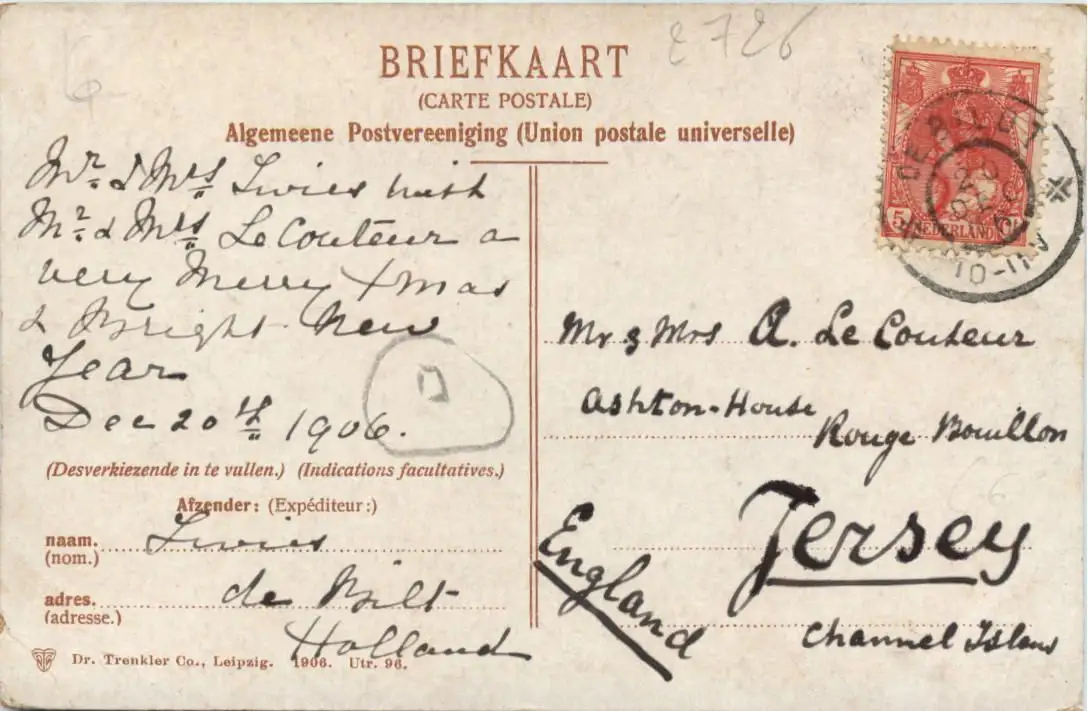 2726
BRIEFKAART
(CARTE POSTALE)
Algemeene Postvereeniging (Union postale universelle)
Mr. & Mrs Swies wish
Mr. & Mrs Le Couteur a
very Merry Xmas
& Bright New
Year
Dec 20th 1906.
(Desverkiezende in te vullen.) (Indications facultatives.)
Afzender: (Expéditeur:)
naam. Swies
(nom.)
adres. de Bilt
(adresse.)
Holland
Dr. Trenkler Co., Leipzig. 1906. Utr. 96.
DE BILT
20 DEC
10-11 V
5 Ct
NEDERLAND
Mr & Mrs A. Le Couteur
Ashton-House
Rouge Bouillon
Jersey
England
Channel Islans